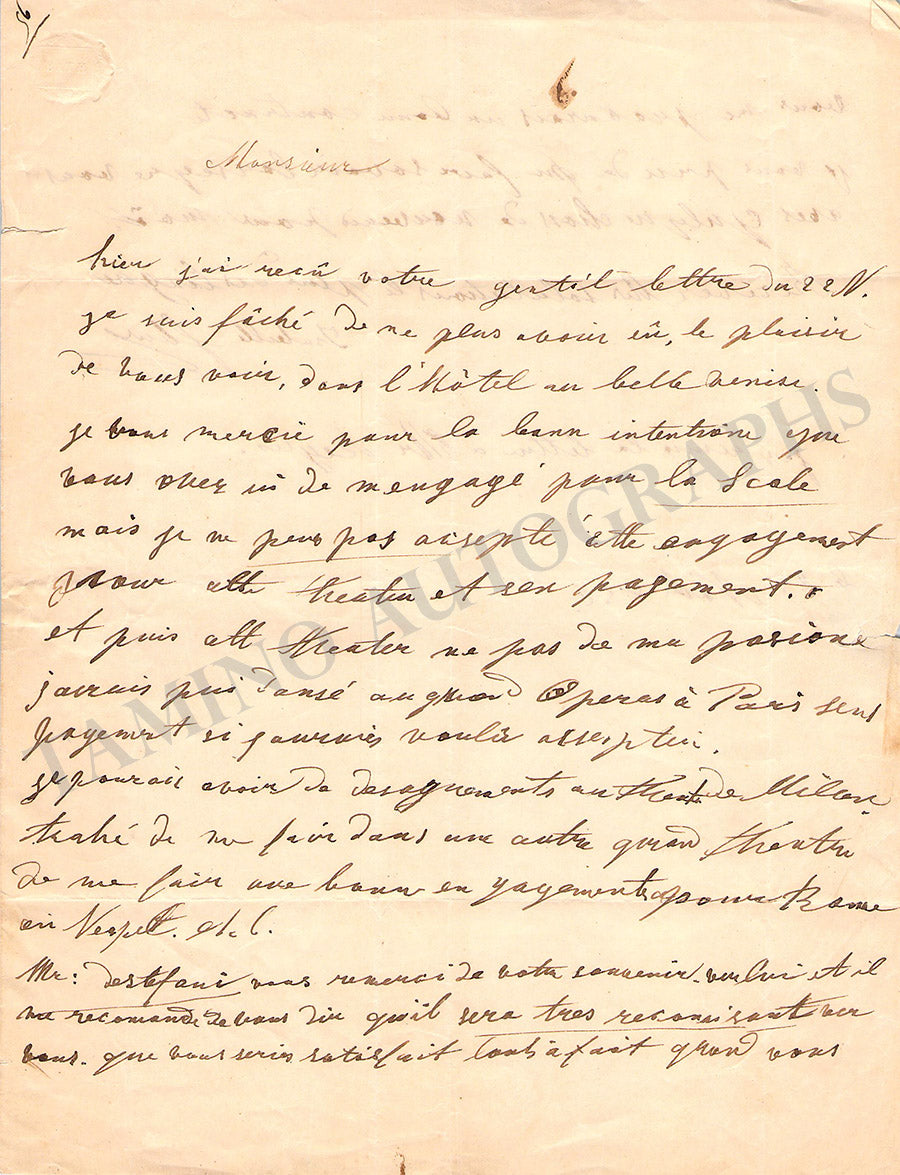 6.
Monsieur
hier j'ai reçû votre gentil lettre du 22 N.
je suis fâché de ne plus avoir eû, le plaisir
de vous voir, dans l'Hôtel au belle venise.
je vous mercie pour la bonn intentione que
vous avez ûs de mengagé pour la Scale
mais je ne peus pas acsepté cette engagement
pour cette theater et sen pagement.
et puis cett theater ne pas de ma pasione
jaurais pui dansé au grand Operas à Paris sens
pagement si jaurais voulir acseptir.
je pourais avoir de desagrements au theater de Milan
traké de me fair dans une autre grand theatre
de me fair une bonn engagements pour Rome
ou Neapel. etc.
Mr: Destefani vous remerci de votre souvenir ver lui et il
me recomande de vous dir qu'il sera tres reconaisant ver
vous. que vous serier satisfait toutàfait quand vous
TAMINO AUTOGRAPHS